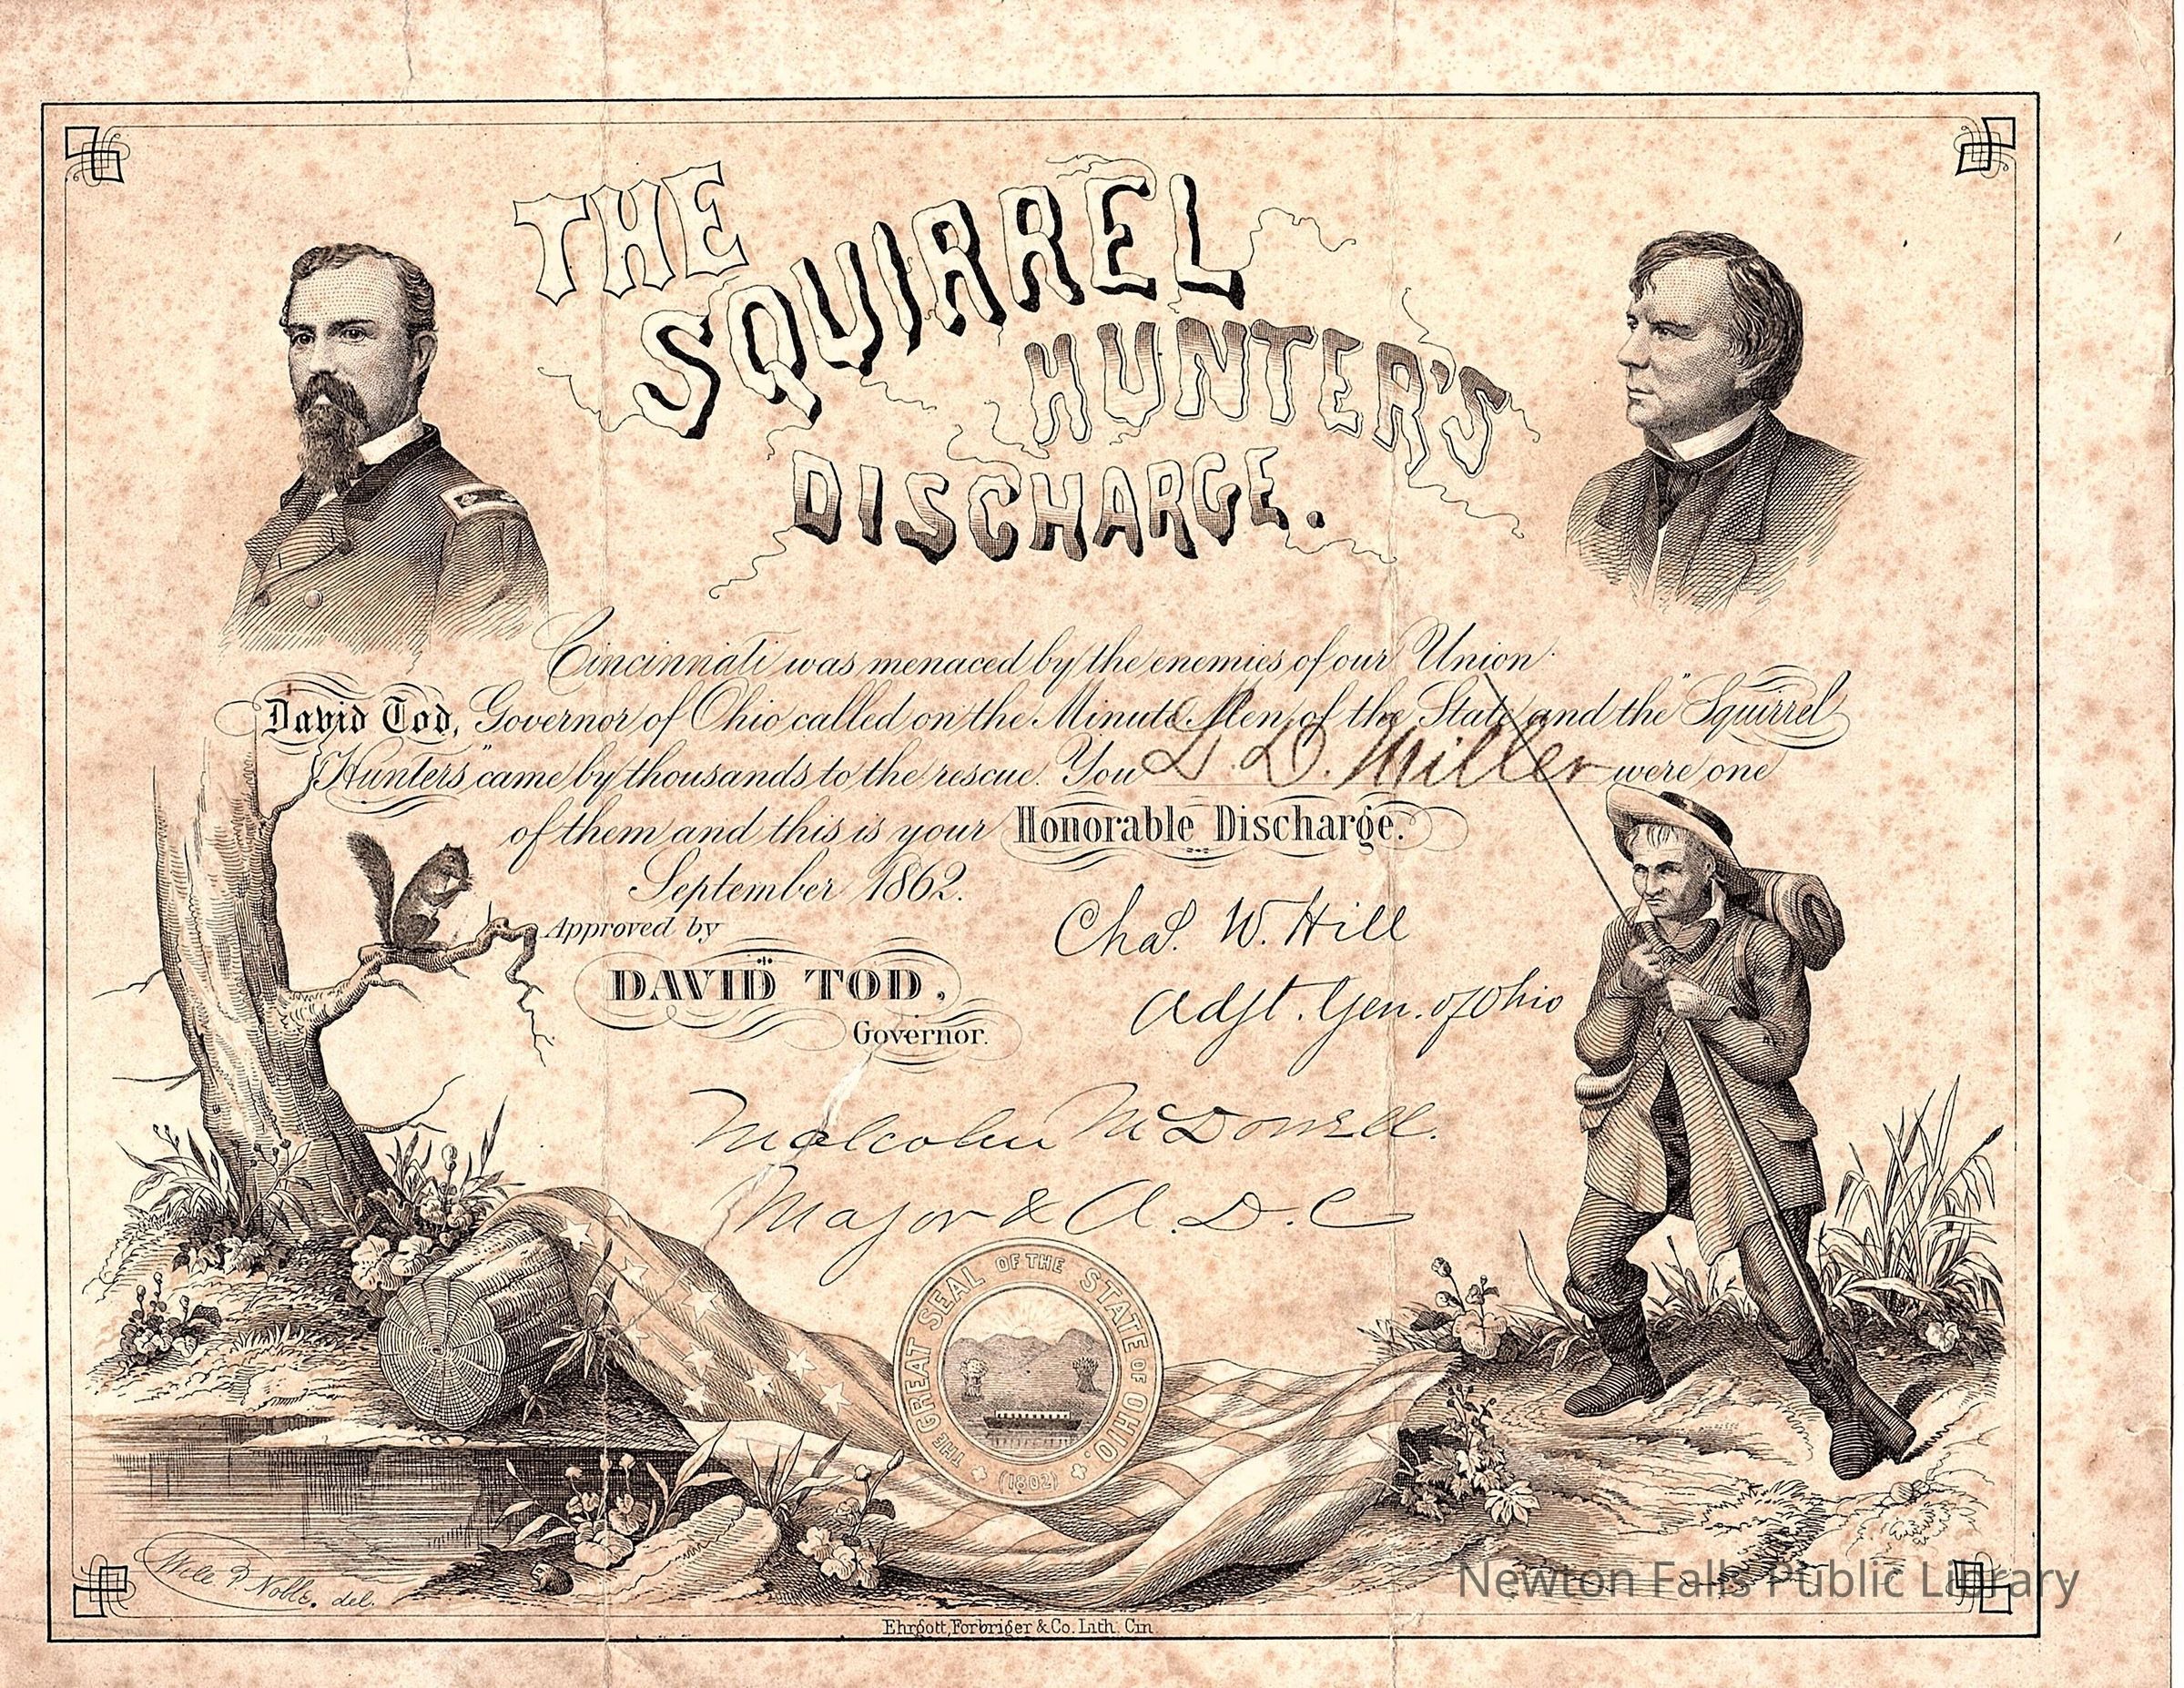 THE
SQUIRREL
HUNTER'S
DISCHARGE.
Cincinnati was menaced by the enemies of our Union
David Tod, Governor of Ohio called on the Minute Men of the State and the "Squirrel
Hunters" came by thousands to the rescue. You L. D. Miller were one
of them and this is your Honorable Discharge.
September 1862.
Approved by
Chas. W. Hill
DAVID TOD,
Adjt. Gen. of Ohio
Governor.
Malcolm McDowell.
Major & A. D. C
THE GREAT SEAL OF THE STATE OF OHIO.
(1802)
Noble. del.
Newton Falls Public Library
Ehrgott, Forbriger & Co. Lith. Cin